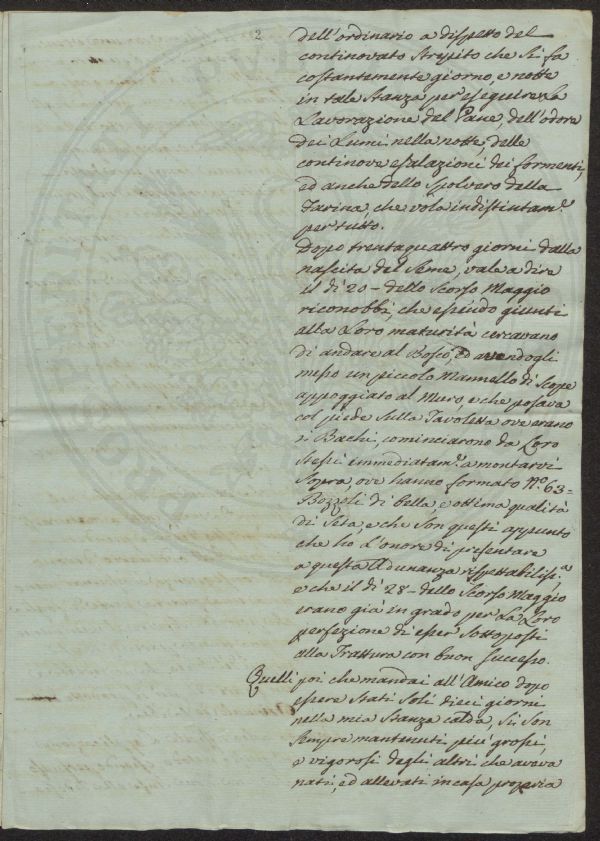 2
dell'ordinario a dispetto del
continovato strepito che si fa
costantemente giorno, e notte
in tale Stanza per eseguire La
Lavorazione del Pane, dell'odore
dei Lumi nella notte, delle
continove esalazioni dei formenti,
ed anche dello Spolvero della
Farina, che vola indistintam.e
per tutto.
Dopo trentaquattro giorni dalla
nascita del Seme, vale a dire
il dì 20 - dello Scorso Maggio
riconobbi, che essendo giunti
alla Loro maturità cercavano
di andare al Bosco, ed avendogli
messo un piccolo Mannello di Scope
appoggiato al Muro, e che posava
col piede sulla Tavoletta ove erano
i Bachi, cominciarono da Loro
stessi immediatam.e a montarvi
Sopra, ove hanno formato N.o 63 =
Bozzoli di bella, e ottima qualità
di Seta, e che Son questi appunto
che ho L'onore di presentare
a questa Adunanza rispettabiliss.a
e che il dì 28 - dello Scorso Maggio
erano già in grado per La Loro
perfezione di esser Sottoposti
alla Trattura con buon Successo.
Quelli poi che mandai all'Amico dopo
essere Stati Soli dieci giorni
nella mia Stanza calda, Si Son
Sempre mantenuti più grossi,
e vigorosi degli altri che aveva
nati, ed allevati in casa propria